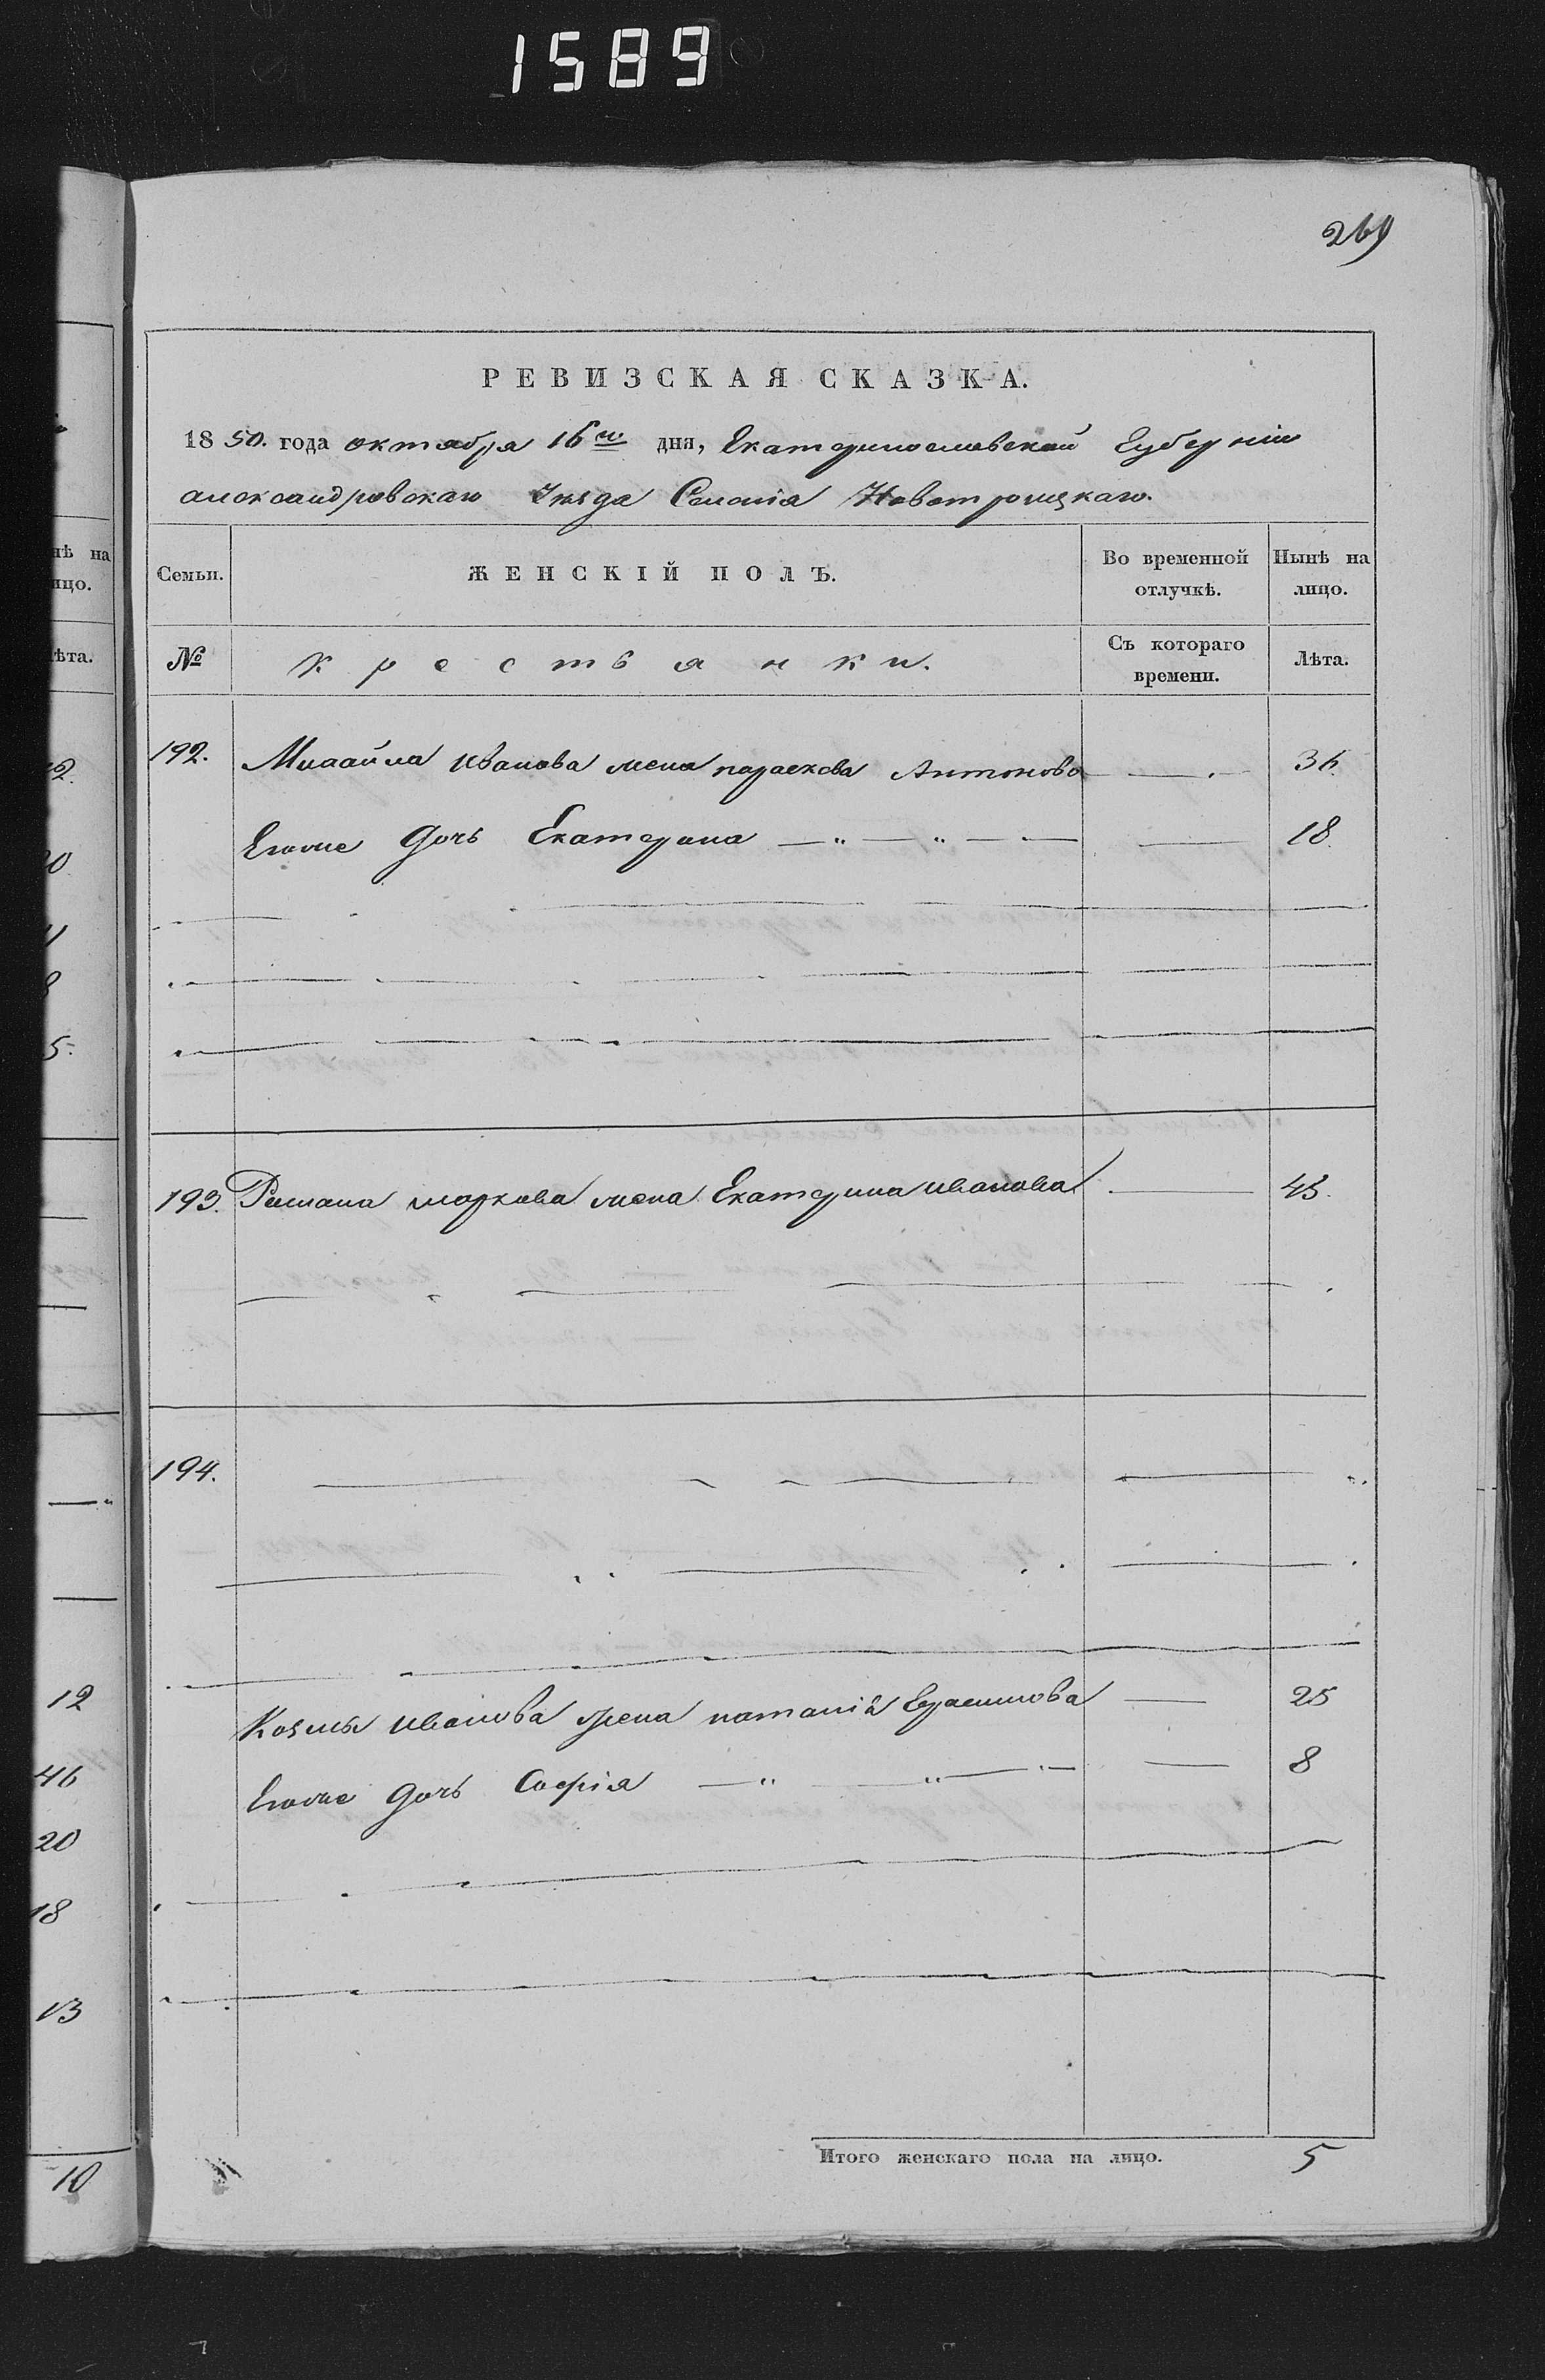 1589
269
РЕВИЗСКАЯ СКАЗКА.
1850. года октября 16го дня, Екатеринославской Губерніи
александровскаго Уѣзда Селенія Новотроицкаго.
Семьи. ЖЕНСКІЙ ПОЛЪ. Во временной отлучкѣ. Нынѣ на лицо.
№ крестьянки. Съ котораго времени. Лѣта.
192. Михайла Иванова жена параскева Антонова — 36.
Егоже дочь Екатерина —„—„— — 18.
193. Романа маркова жена Екатерина иванова — 43.
194.
Козмы иванова жена наталія Герасимова — 25
Егоже дочь Софія —„—„— — 8
Итого женскаго пола на лицо. 5
нѣ на
ицо.
ѣта.
12
46
20
18
13
10